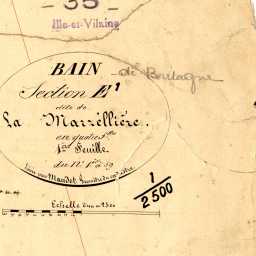 - 35 -
Ille-et-Vilaine
BAIN de Bretagne
Section E¹
dite de
La Marzellière.
en quatre f.lles
1ère Feuille.
du N° 1er à 59
Échelle de 1 à 2500
1/2500